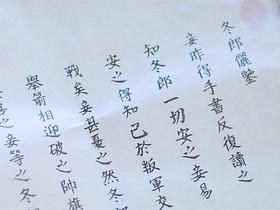 冬郎儷鑒
妾昨得手書反復讀之
知冬郎一切安之妾易
安之得知已於叛軍交
戰矣妾甚憂之然冬
舉箭相迎破之帥旗
之妾等之冬